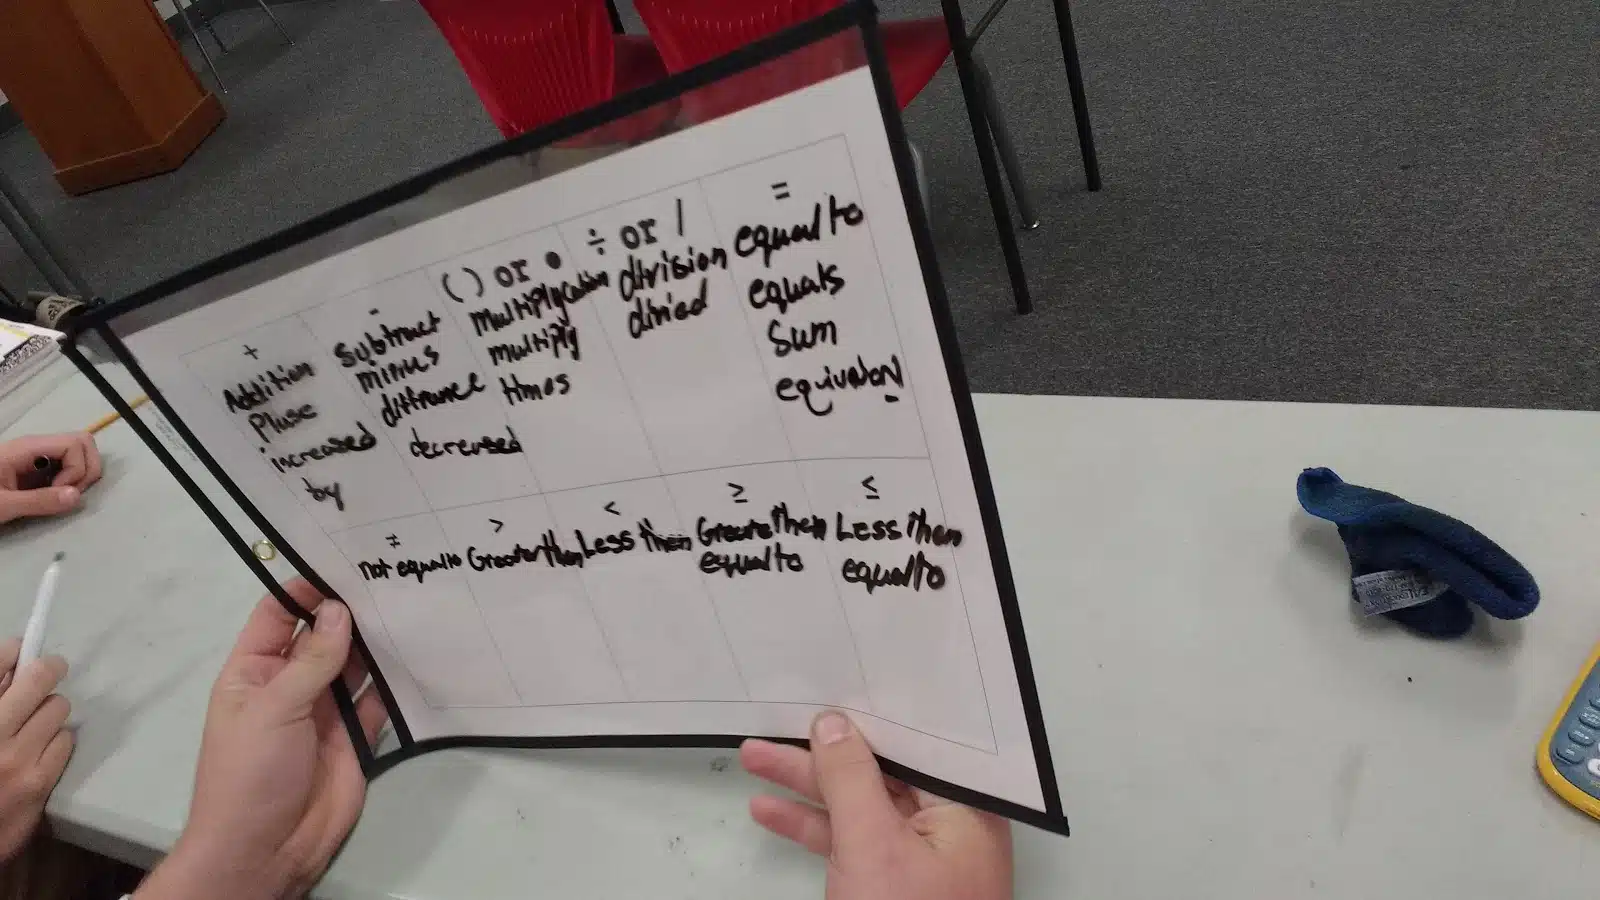 +
Addition
Pluse
increased
by
-
Subtract
minus
diffrance
decreased
( ) or •
Multiplycation
multiply
times
÷ or /
division
divied
=
equal to
equals
Sum
equivalent
≠
not equal to
>
Greater then
<
Less then
≥
Greater then
equal to
≤
Less then
equal to